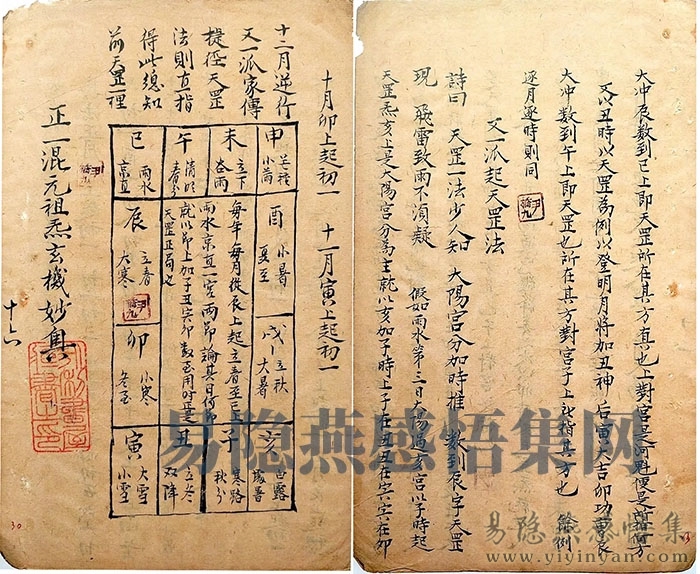 大冲辰数到巳上即天罡所在其方真也上對宮是河魁便是所指方
又以丑時以天罡為例以登明月將加丑神 后寅大吉卯功曹辰
大冲数到午上即天罡也所在其方對宮子上 指其方也 餘例
逐月逐時則同
又一派起天罡法
詩曰 天罡一法少人知 大陽宮分加時推 数到辰字天罡
現 飛雷致雨不湏疑 假如雨水第三日太陽過亥宮以子時起
天罡炁亥上是太陽宮分為主就以亥加子時上子在丑丑在寅寅在卯
十月卯上起初一 十一月寅上起初一
十二月逆行
又一派家傳
捷徑天罡
法則直指
得此總知
前天罡一裡
申 芒種 小満
未 立下 谷雨
午 清明 春分
巳 雨水 京直
酉 小暑 夏至
戌 立秋 大暑
亥 白露 處暑
辰 立春 大寒
卯 小寒 冬至
寅 大雪 小雪
丑 立冬 双降
子 寒路 秋分
每年每月從辰上起立春至巳上
雨水京直一宮两節論其日何節
就以節上加子丑寅卯数至用时是
天罡正局也
正一混元祖炁玄機妙奥
十六
30
易隐燕感悟集网
易隐燕感悟集
www.yiyinyan.com